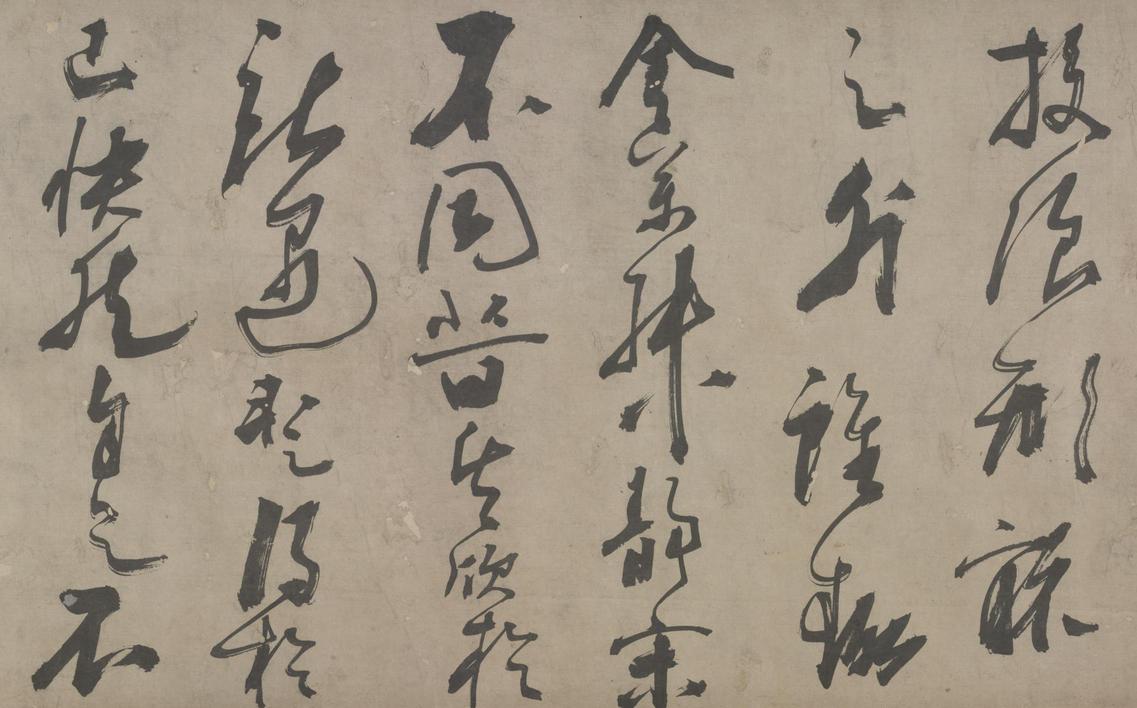 放浪形骸
之外雖趣
舍萬殊靜躁
不同當其欣於
所遇暫得於
己快然自足不